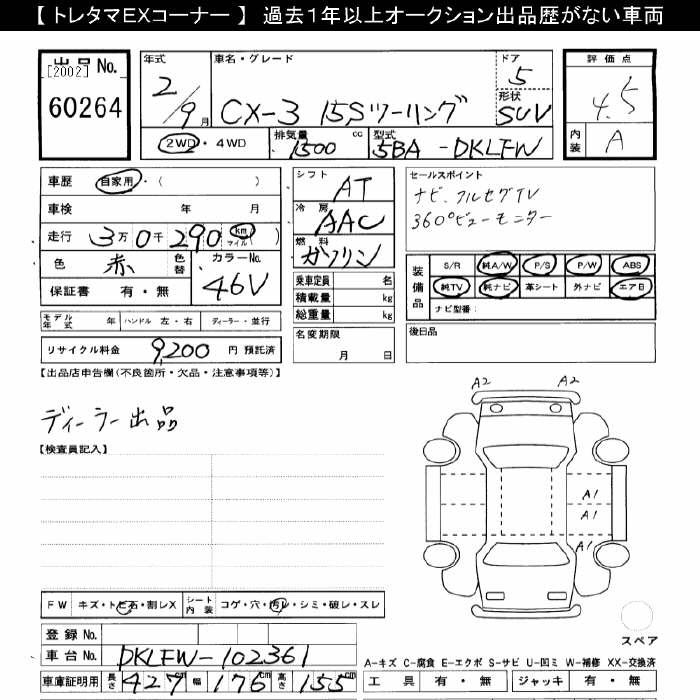 【トレタマEXコーナー】 過去1年以上オークション出品歴がない車両
出品No.
[2002]
60264
年式
2/9月
車名・グレード
CX-3 15Sツーリング
ドア
5
形状
SUV
評価点
4.5
内装
A
2WD・4WD
排気量
1500 cc
型式
5BA-DKLFW
車歴 自家用・( )
車検 年 月
走行 3万0千290 km マイル ( )
色 赤 色替
カラーNo.
46V
保証書 有・無
シフト
AT
冷房
AAC
燃料
ガソリン
乗車定員 名
積載量 kg
総重量 kg
セールスポイント
ナビ、フルセグTV
360°ビューモニター
装備品
S/R 純A/W P/S P/W ABS
純TV 純ナビ 革シート 外ナビ エアB
ナビ型番:
モデル年式 年 ハンドル 左・右 ディーラー・並行
リサイクル料金 9,200 円 預託済
名変期限
月 日
後日品
【出品店申告欄(不良箇所・欠品・注意事項等)】
ディーラー出品
【検査員記入】
A2 A2
A1
A1
A1
FW キズ・トビ石・割レX シート内装 コゲ・穴・汚レ・シミ・破レ・スレ
スペア
登録No.
車台No. DKLFW-102361
車庫証明用 長さ 427 cm 幅 176 cm 高さ 155 cm
A-キズ C-腐食 E-エクボ S-サビ U-凹ミ W-補修 XX-交換済
工具 有・無 ジャッキ 有・無